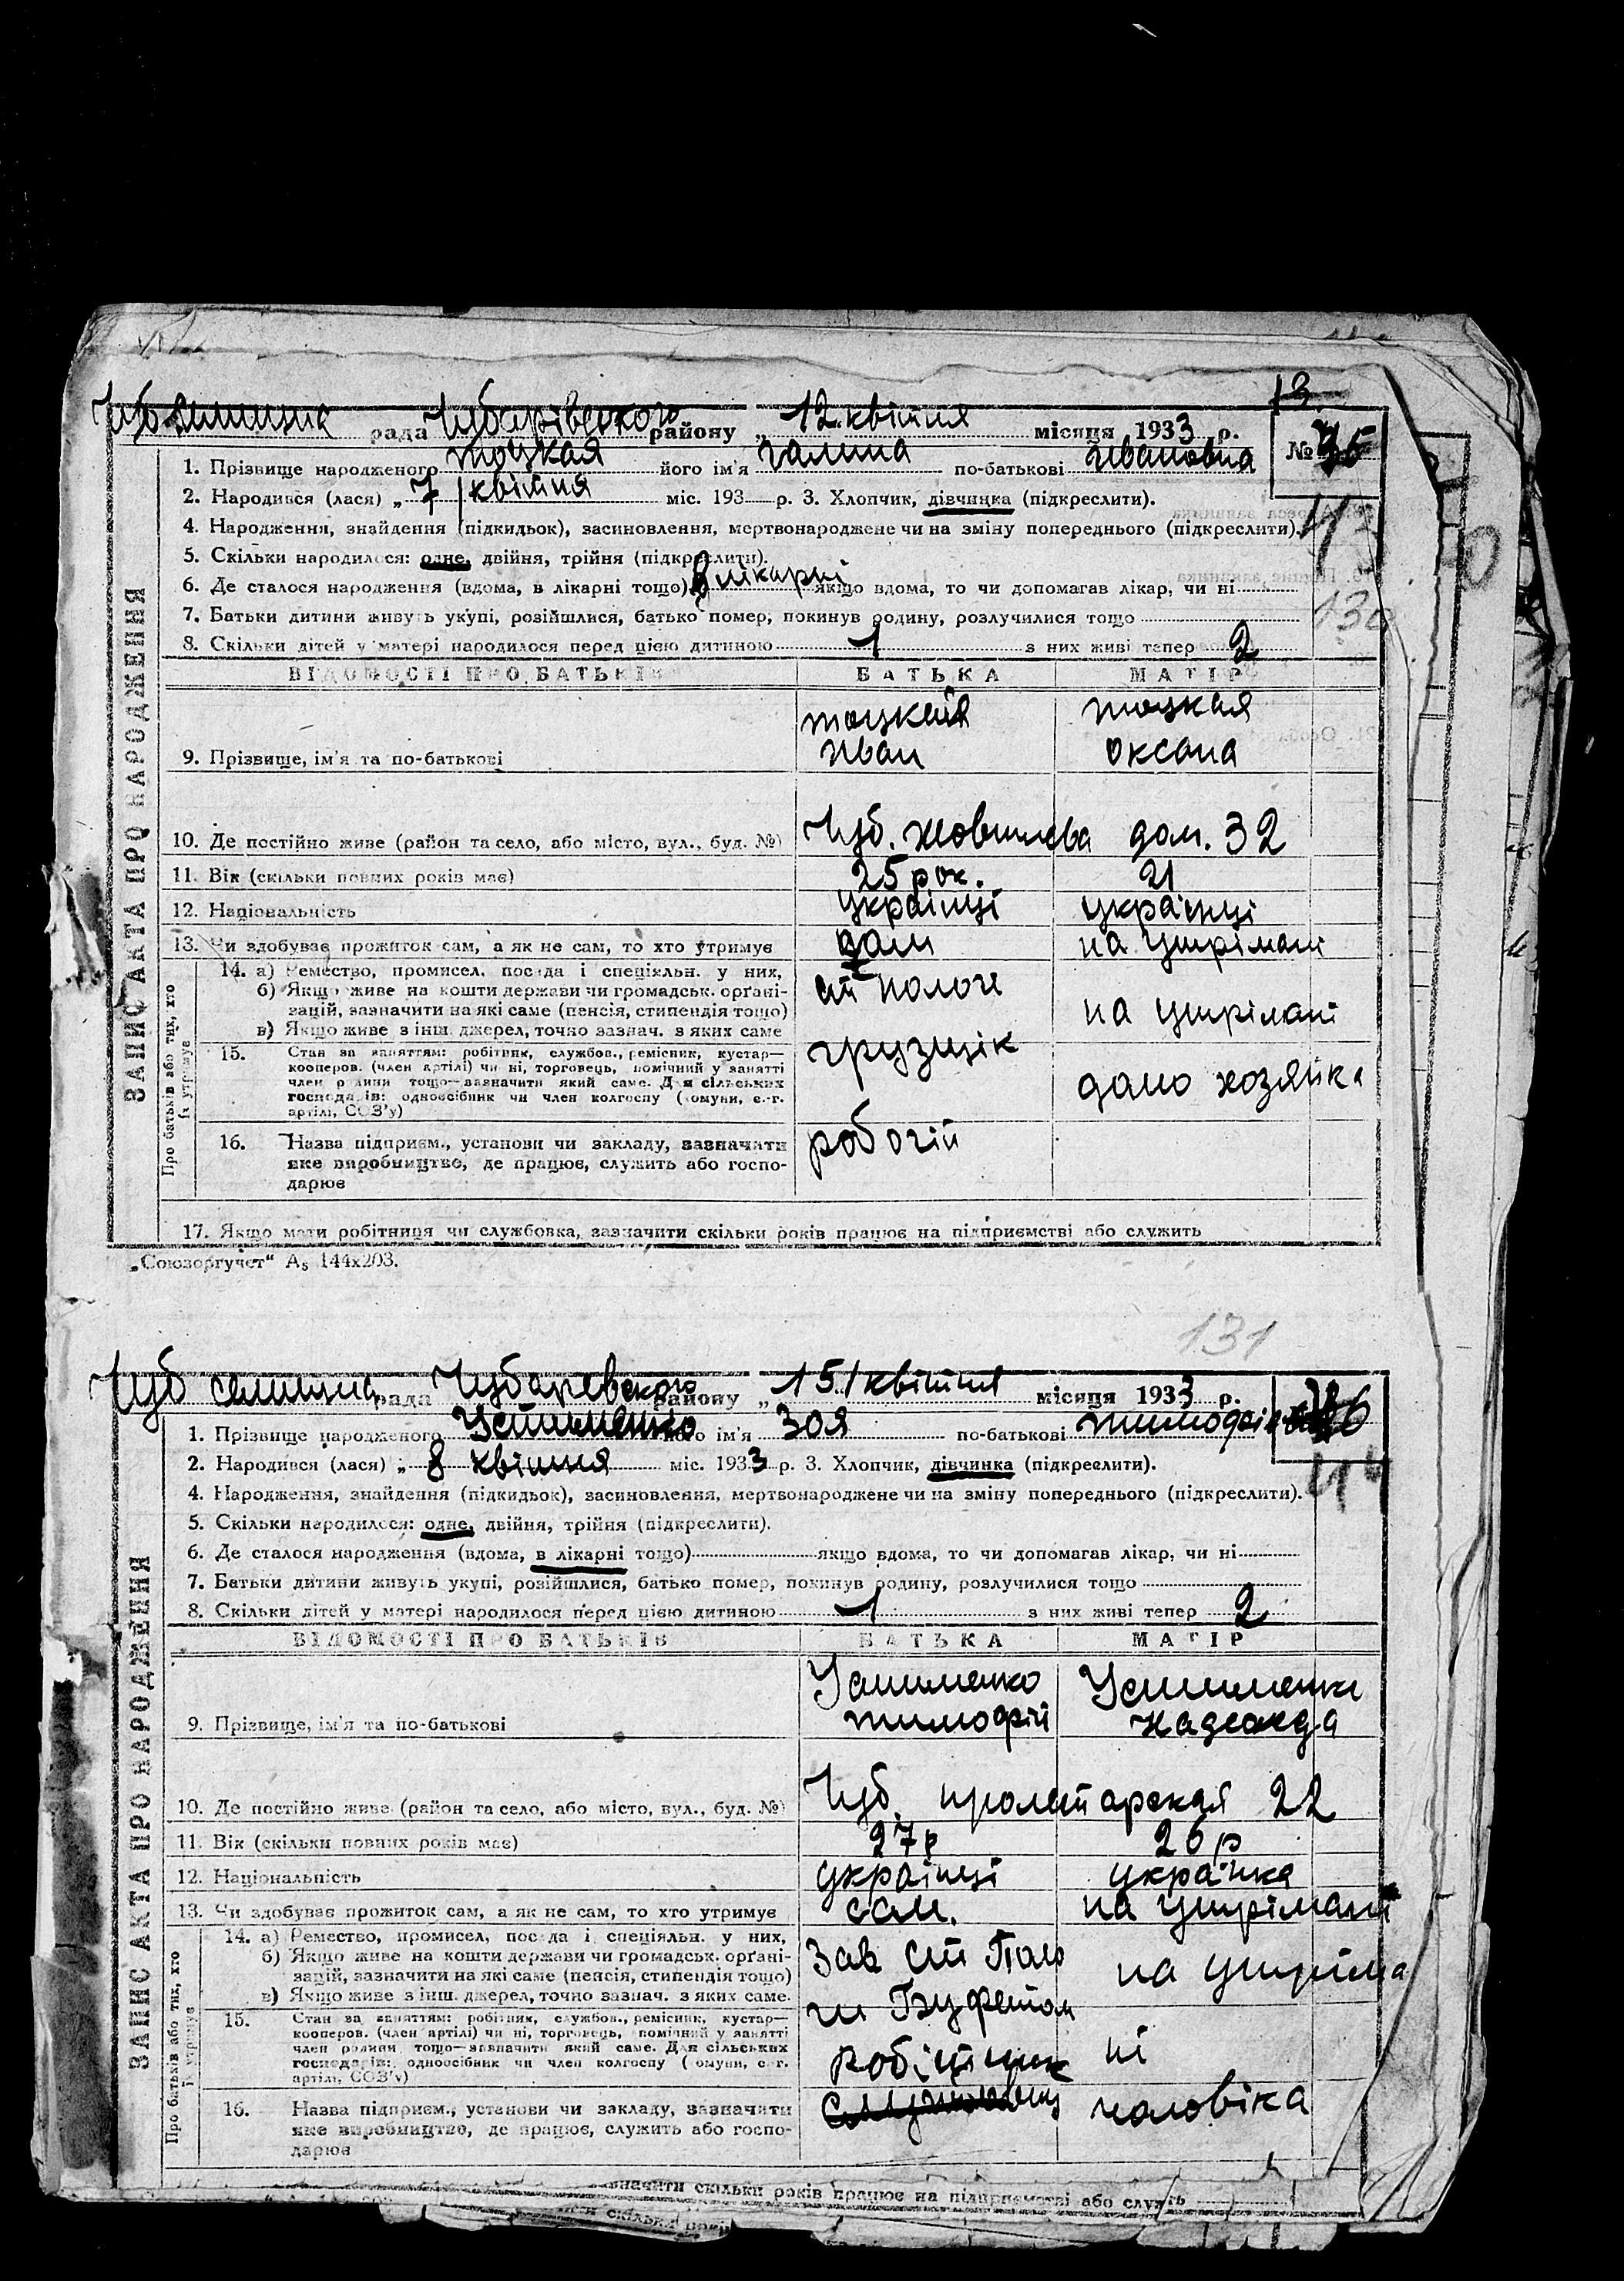 13
Чуб селищна рада Чубарівського району „ 12 квітня місяця 1933 р.
№ 75
1. Прізвище народженого тоцкая його ім'я галина по-батькові Ивановна
2. Народився (лася) „ 7 квітня міс. 193 р. 3. Хлопчик, дівчинка (підкреслити).
4. Народження, знайдення (підкидьок), засиновлення, мертвонароджене чи на зміну попереднього (підкреслити).
113
5. Скільки народилося: одне, двійня, трійня (підкреслити).
6. Де сталося народження (вдома, в лікарні тощо) В лікарні якщо вдома, то чи допомагав лікар, чи ні
130
7. Батьки дитини живуть укупі, розійшлися, батько помер, покинув родину, розлучилися тощо
8. Скільки дітей у матері народилося перед цією дитиною 1 з них живі тепер 2
ВІДОМОСТІ ПРО БАТЬКІВ БАТЬКА МАТІР
тоцкий тоцкая
9. Прізвище, ім'я та по-батькові Иван оксана
10. Де постійно живе (район та село, або місто, вул., буд. №) Чуб. жовтнева дом. 32
11. Вік (скільки повних років має) 25 рок. 21
12. Національність українці українці
13. Чи здобуває прожиток сам, а як не сам, то хто утримує сам на утрімані
ЗАПИС АКТА ПРО НАРОДЖЕННЯ
Про батьків або тих, хто їх утримує
14. а) Ремество, промисел, посада і спеціяльн. у них,
б) Якщо живе на кошти держави чи громадськ. орґані-
зацій, зазначити на які саме (пенсія, стипендія тощо)
в) Якщо живе з інш. джерел, точно зазнач. з яких саме
ст пологи на утрімані
15. Стан за заняттям: робітник, службов., ремісник, кустар—
кооперов. (член артілі) чи ні, торговець, помічний у занятті
член родини тощо—зазначити який саме. Для сільських
господарів: одноосібник чи член колгоспу (комуни, с.-г.
артілі, СОЗ'у)
грузщік дамо хозяйка
16. Назва підприєм., установи чи закладу, зазначити
яке виробництво, де працює, служить або госпо-
дарює
робочій
17. Якщо мати робітниця чи службовка, зазначити скільки років працює на підприємстві або служить
„Союзоргучет“ А5 144x203.
131
Чуб селищна рада Чубаревского району „ 15 квітня місяця 1933 р.
76
1. Прізвище народженого Устименко його ім'я Зоя по-батькові
2. Народився (лася) „ 8 квітня міс. 1933 р. 3. Хлопчик, дівчинка (підкреслити).
114
4. Народження, знайдення (підкидьок), засиновлення, мертвонароджене чи на зміну попереднього (підкреслити).
5. Скільки народилося: одне, двійня, трійня (підкреслити).
6. Де сталося народження (вдома, в лікарні тощо) якщо вдома, то чи допомагав лікар, чи ні
7. Батьки дитини живуть укупі, розійшлися, батько помер, покинув родину, розлучилися тощо
8. Скільки дітей у матері народилося перед цією дитиною 1 з них живі тепер 2
ВІДОМОСТІ ПРО БАТЬКІВ БАТЬКА МАТІР
Устименко Устименко
9. Прізвище, ім'я та по-батькові тимофій надежда
10. Де постійно живе (район та село, або місто, вул., буд. №) Чуб. пролетарская 22
11. Вік (скільки повних років має) 27 р 26 р
12. Національність українці українка
13. Чи здобуває прожиток сам, а як не сам, то хто утримує сам. на утрімані
ЗАПИС АКТА ПРО НАРОДЖЕННЯ
Про батьків або тих, хто їх утримує
14. а) Ремество, промисел, посада і спеціяльн. у них,
б) Якщо живе на кошти держави чи громадськ. орґані-
зацій, зазначити на які саме (пенсія, стипендія тощо)
в) Якщо живе з інш. джерел, точно зазнач. з яких саме.
Зав ст Поло на утріма
ги Буфетом
15. Стан за заняттям: робітник, службов., ремісник, кустар—
кооперов. (член артілі) чи ні, торговець, помічний у занятті
член родини тощо—зазначити який саме. Для сільських
господарів: одноосібник чи член колгоспу (комуни, с.-г.
артілі, СОЗ'у)
робітник ні
16. Назва підприєм., установи чи закладу, зазначити
яке виробництво, де працює, служить або госпо-
дарює
чоловіка
значити скільки років працює на підприємстві або служить